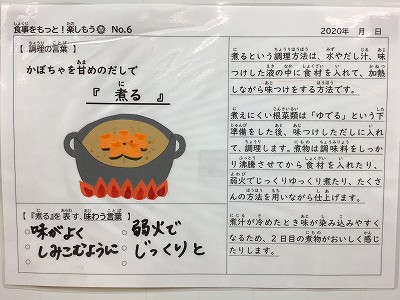 食事をもっと!楽しもう No.6
2020年 月 日
【 調理の言葉 】
かぼちゃを甘めのだしで
『 煮る 』
【『煮る』を表す、味わう言葉】
味がよく
しみこむように
弱火で
じっくりと
煮るという調理方法は、水やだし汁、味
つけした液の中に食材を入れて、加熱
しながら味つけをする方法です。
煮えにくい根菜類は「ゆでる」という下
準備をした後、味つけしただしに入れ
て、調理します。煮物は調味料をしっか
り沸騰させてから食材を入れたり、
弱火でじっくりゆっくり煮たり、たくさ
んの方法を用いながら仕上げます。
煮汁が冷めたとき味が染み込みやすく
なるため、2日目の煮物がおいしく感じ
たりします。